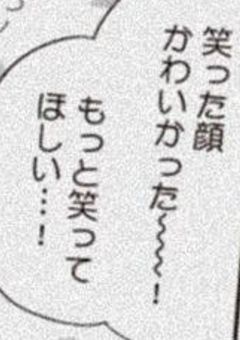 笑った顔
かわいかった～～～！
もっと笑って
ほしい…！